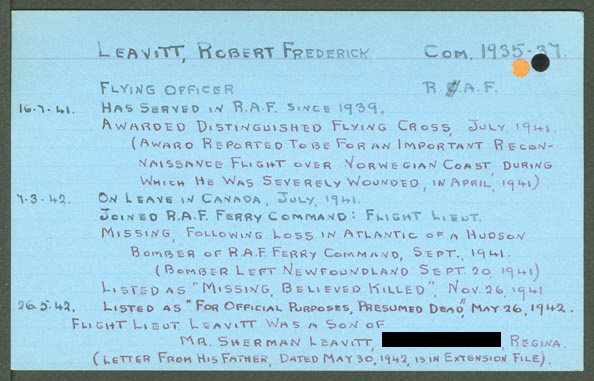 LEAVITT, ROBERT FREDERICK COM. 1935-37.
FLYING OFFICER R.A.F.
16.7.41. HAS SERVED IN R.A.F. SINCE 1939.
AWARDED DISTINGUISHED FLYING CROSS, JULY, 1941.
(AWARD REPORTED TO BE FOR AN IMPORTANT RECON-
NAISSANCE FLIGHT OVER NORWEGIAN COAST, DURING
WHICH HE WAS SEVERELY WOUNDED, IN APRIL, 1941)
7.3.42. ON LEAVE IN CANADA, JULY, 1941.
JOINED R.A.F. FERRY COMMAND: FLIGHT LIEUT.
MISSING, FOLLOWING LOSS IN ATLANTIC OF A HUDSON
BOMBER OF R.A.F. FERRY COMMAND, SEPT., 1941.
(BOMBER LEFT NEWFOUNDLAND SEPT. 20, 1941)
LISTED AS "MISSING, BELIEVED KILLED", NOV. 26, 1941
26.5.42. LISTED AS "FOR OFFICIAL PURPOSES, PRESUMED DEAD", MAY 26, 1942.
FLIGHT LIEUT. LEAVITT WAS A SON OF
MR. SHERMAN LEAVITT, REGINA.
(LETTER FROM HIS FATHER, DATED MAY 30, 1942, IS IN EXTENSION FILE).